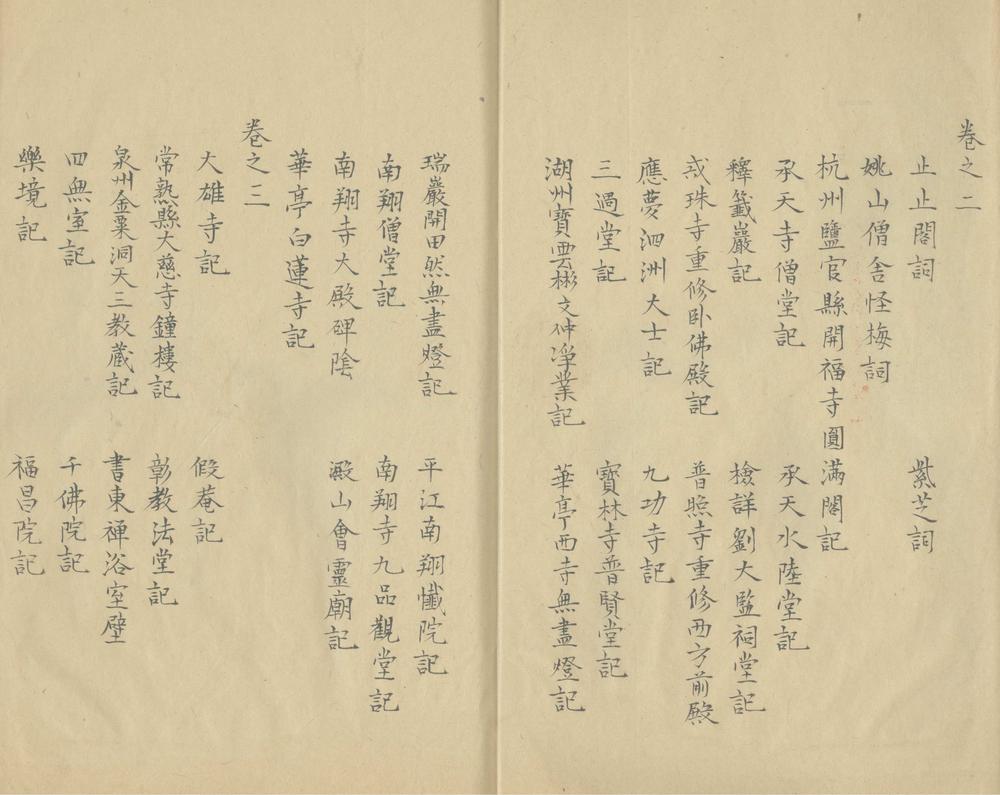 卷之二
止止閣詞　紫芝詞
姚山僧舍怪梅詞
杭州鹽官縣開福寺圓滿閣記
承天寺僧堂記　承天水陸堂記
釋籤巖記　檢詳劉大監祠堂記
戒珠寺重修卧佛殿記　普照寺重修西方前殿
應夢泗洲大士記　九功寺記
三過堂記　寶林寺普賢堂記
湖州寶雲彬文仲淨業記　華亭西寺無盡燈記
瑞巖開田然無盡燈記　平江南翔懺院記
南翔僧堂記　南翔寺九品觀堂記
南翔寺大殿碑陰　澱山會靈廟記
華亭白蓮寺記
卷之三
大雄寺記　假菴記
常熟縣大慈寺鐘樓記　彰教法堂記
泉州金粟洞天三教藏記　書東禪浴室壁
四無室記　千佛院記
樂境記　福昌院記